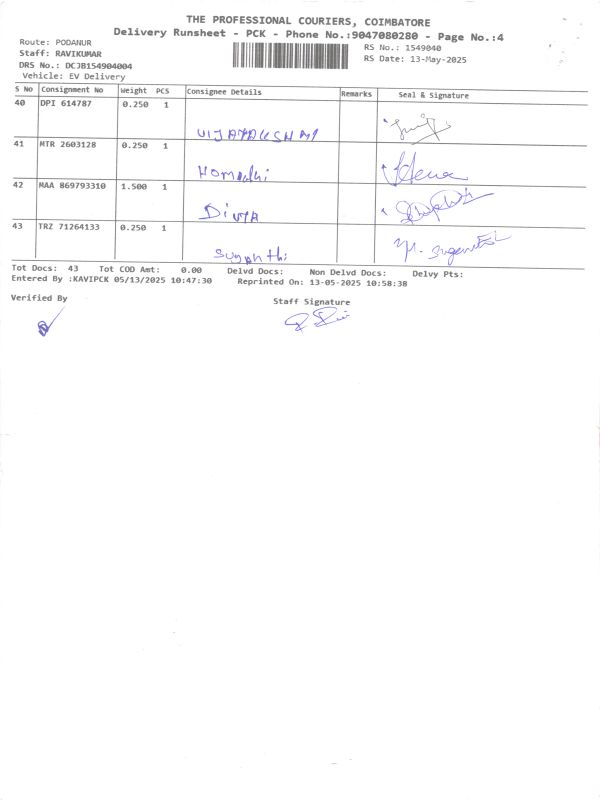 THE PROFESSIONAL COURIERS, COIMBATORE
Delivery Runsheet - PCK - Phone No.:9047080280 - Page No.:4
Route: PODANUR
RS No.: 1549040
Staff: RAVIKUMAR
RS Date: 13-May-2025
DRS No.: DCJB154904004
Vehicle: EV Delivery
S No Consignment No Weight PCS Consignee Details Remarks Seal & Signature
40 DPI 614787 0.250 1
VIJAYALKSHMI
41 MTR 2603128 0.250 1
42 MAA 869793310 1.500 1
Divya
43 TRZ 71264133 0.250 1
Suganthi
Tot Docs: 43 Tot COD Amt: 0.00 Delvd Docs: Non Delvd Docs: Delvy Pts:
Entered By :KAVIPCK 05/13/2025 10:47:30 Reprinted On: 13-05-2025 10:58:38
Verified By
Staff Signature